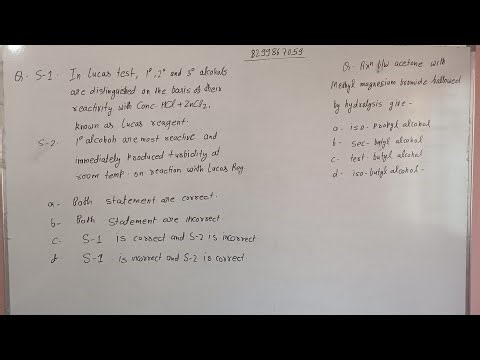 8299867059
Q. S-1. In Lucas test, 1°, 2° and 3° alcohols
are distinguished on the basis of their
reactivity with Conc. HCl + ZnCl2,
known as Lucas reagent.
S-2. 1° alcohols are most reactive and
immediately produced turbidity at
room temp. on reaction with Lucas Reg
a- Both statement are correct.
b- Both statement are incorrect
c- S-1 is correct and S-2 is incorrect
d S-1 is incorrect and S-2 is correct
Q- Rxn b/w acetone with
Methyl magnesium bromide followed
by hydrolysis give -
a - iso-propyl alcohol
b - sec-butyl alcohol
c - tert-butyl alcohol
d - iso-butyl alcohol -